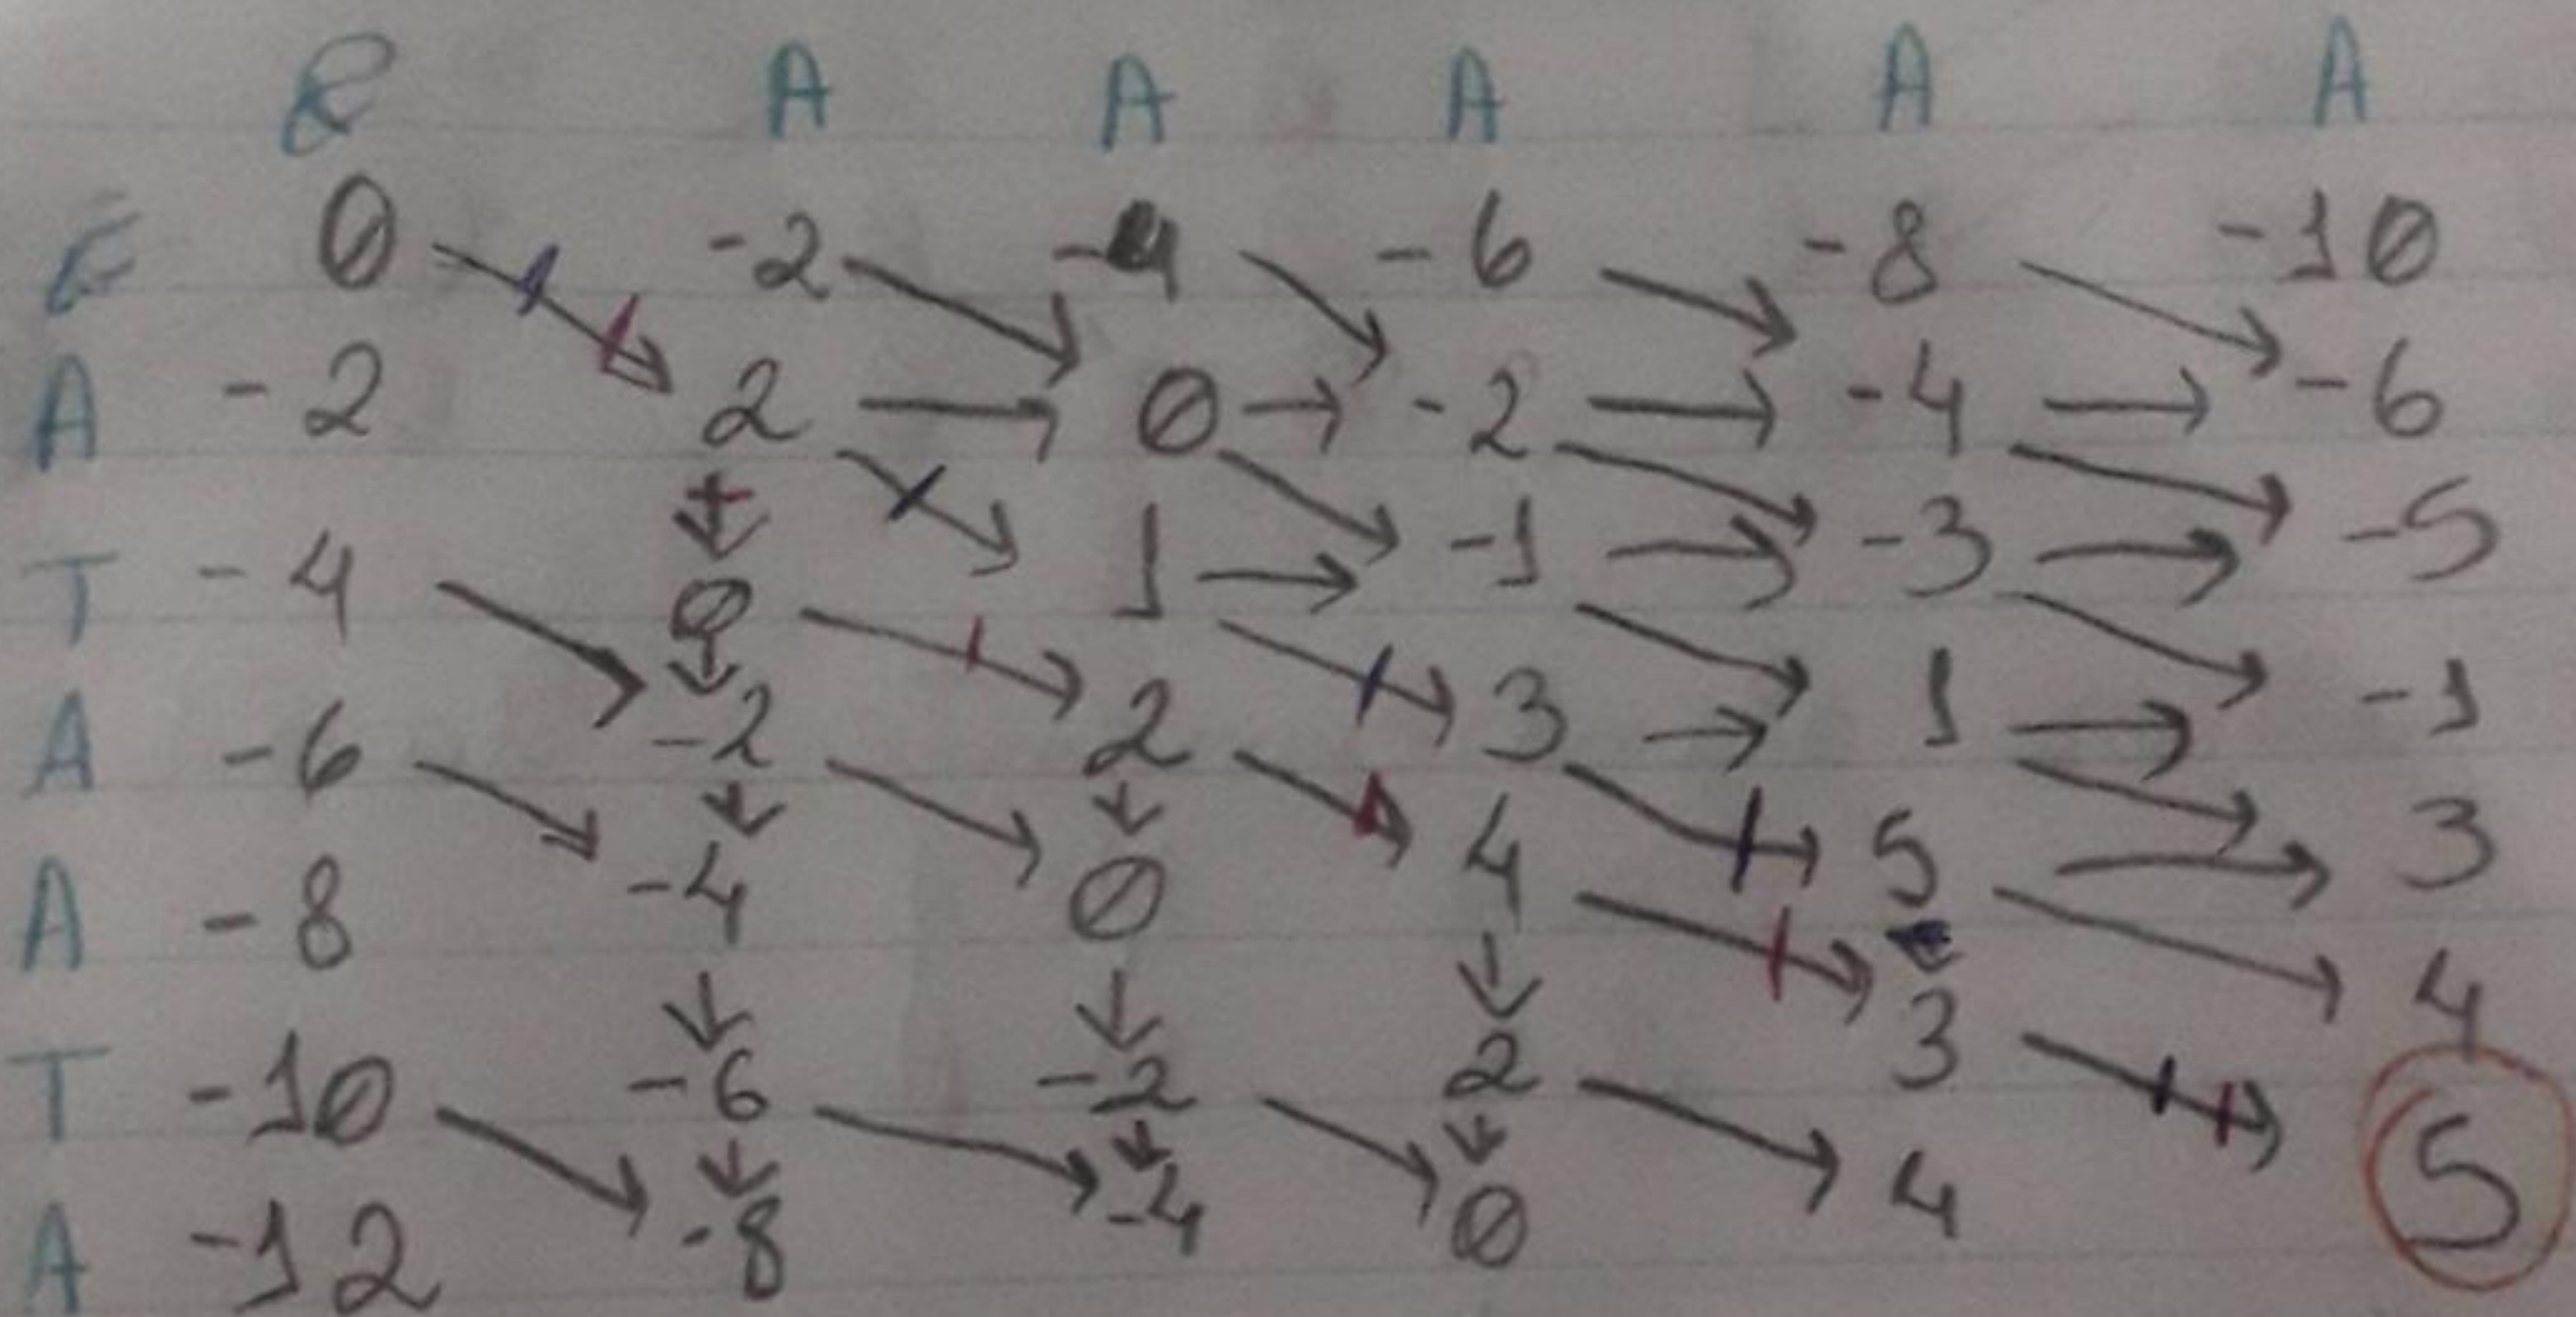 ε A A A A A
ε 0 -2 -4 -6 -8 -10
A -2 2 0 -2 -4 -6
T -4 0 1 -1 -3 -5
A -6 -2 2 3 1 -1
A -8 -4 0 4 5 3
T -10 -6 -2 2 3 4
A -12 -8 -4 0 4 5